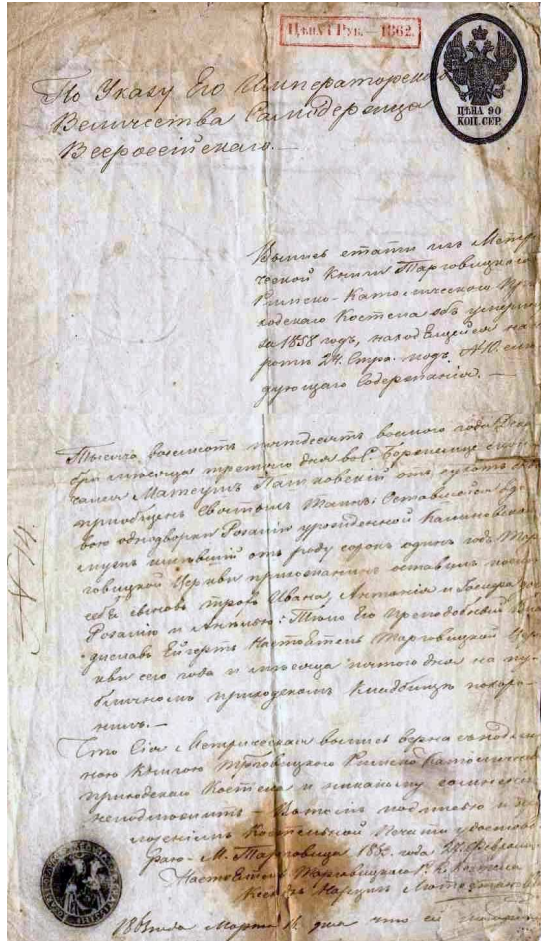 Цѣна 1 Руб. — 1862.
ЦѢНА 90
КОП. СЕР.
По Указу Его Императорскаго
Величества Самодержца
Всероссійскаго. —
Выпись статьи изъ Метри
ческой Книги Торговицкаго
Римско-Католическаго При
ходскаго Костела объ умерш
за 1858 годъ, находящейся на
24. Стра. подъ № 10. слѣ
дующаго Содержанія. —
Тысяча восемьсотъ пятьдесятъ восьмого года Дека
бря мѣсяца третьяго дня въ С.
Матеушъ отъ
пріобщенъ Святыхъ Таинъ. Оставшейся вдо
вою однодворки Розаліи урожденной
мужъ имѣвшій отъ роду сорокъ одинъ годъ Тор
говицкой Церкви прихожанинъ оставилъ послѣ
себя сыновъ Ивана, Антонія и
Розалію и : Тѣло Его преподобный Вла
диславъ Настоятель Торговицкой Цер
кви сего года и мѣсяца пятого дня на пу
бличномъ приходскомъ Кладбищѣ похоро
нилъ. —
Что Сія Метрическая выпись вѣрна съ подлин
ною Книгою Торговицкаго Римско Католическ
приходскаго Костела и никакому сомнѣнію
неподлежитъ — Въ томъ подписью и при
ложеніемъ Костельной Печати удостовѣ
ряю. — М. Торговица года 22 Февраля
Настоятель Торговицкаго Р. К. Костела
Ксендзъ
года Марта дня что
№ 14.